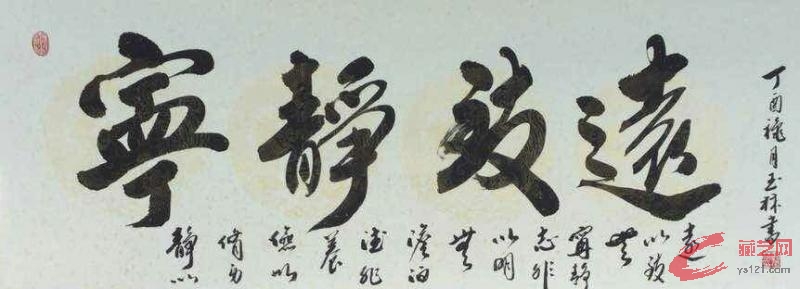 寧靜致遠
靜以
修身
儉以
養
德非
澹泊
無
以明
志非
寧靜
無
以致
遠
丁酉穐月玉林書
藏艺网
ys121.com